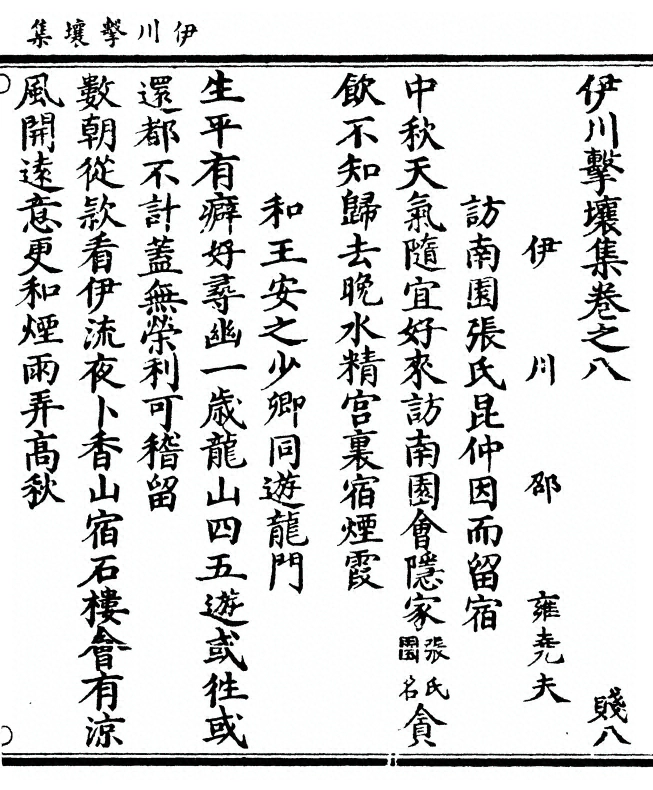 伊川擊壤集
伊川擊壤集卷之八 賤八
伊川邵雍堯夫
訪南園張氏昆仲因而留宿
中秋天氣隨宜好來訪南園會隱家張氏園名貪
飲不知歸去晚水精宮裏宿煙霞
和王安之少卿同遊龍門
生平有癖好尋幽一歲龍山四五遊或徃或
還都不計蓋無榮利可稽留
數朝從款看伊流夜卜香山宿石樓會有涼
風開遠意更和煙雨弄高秋